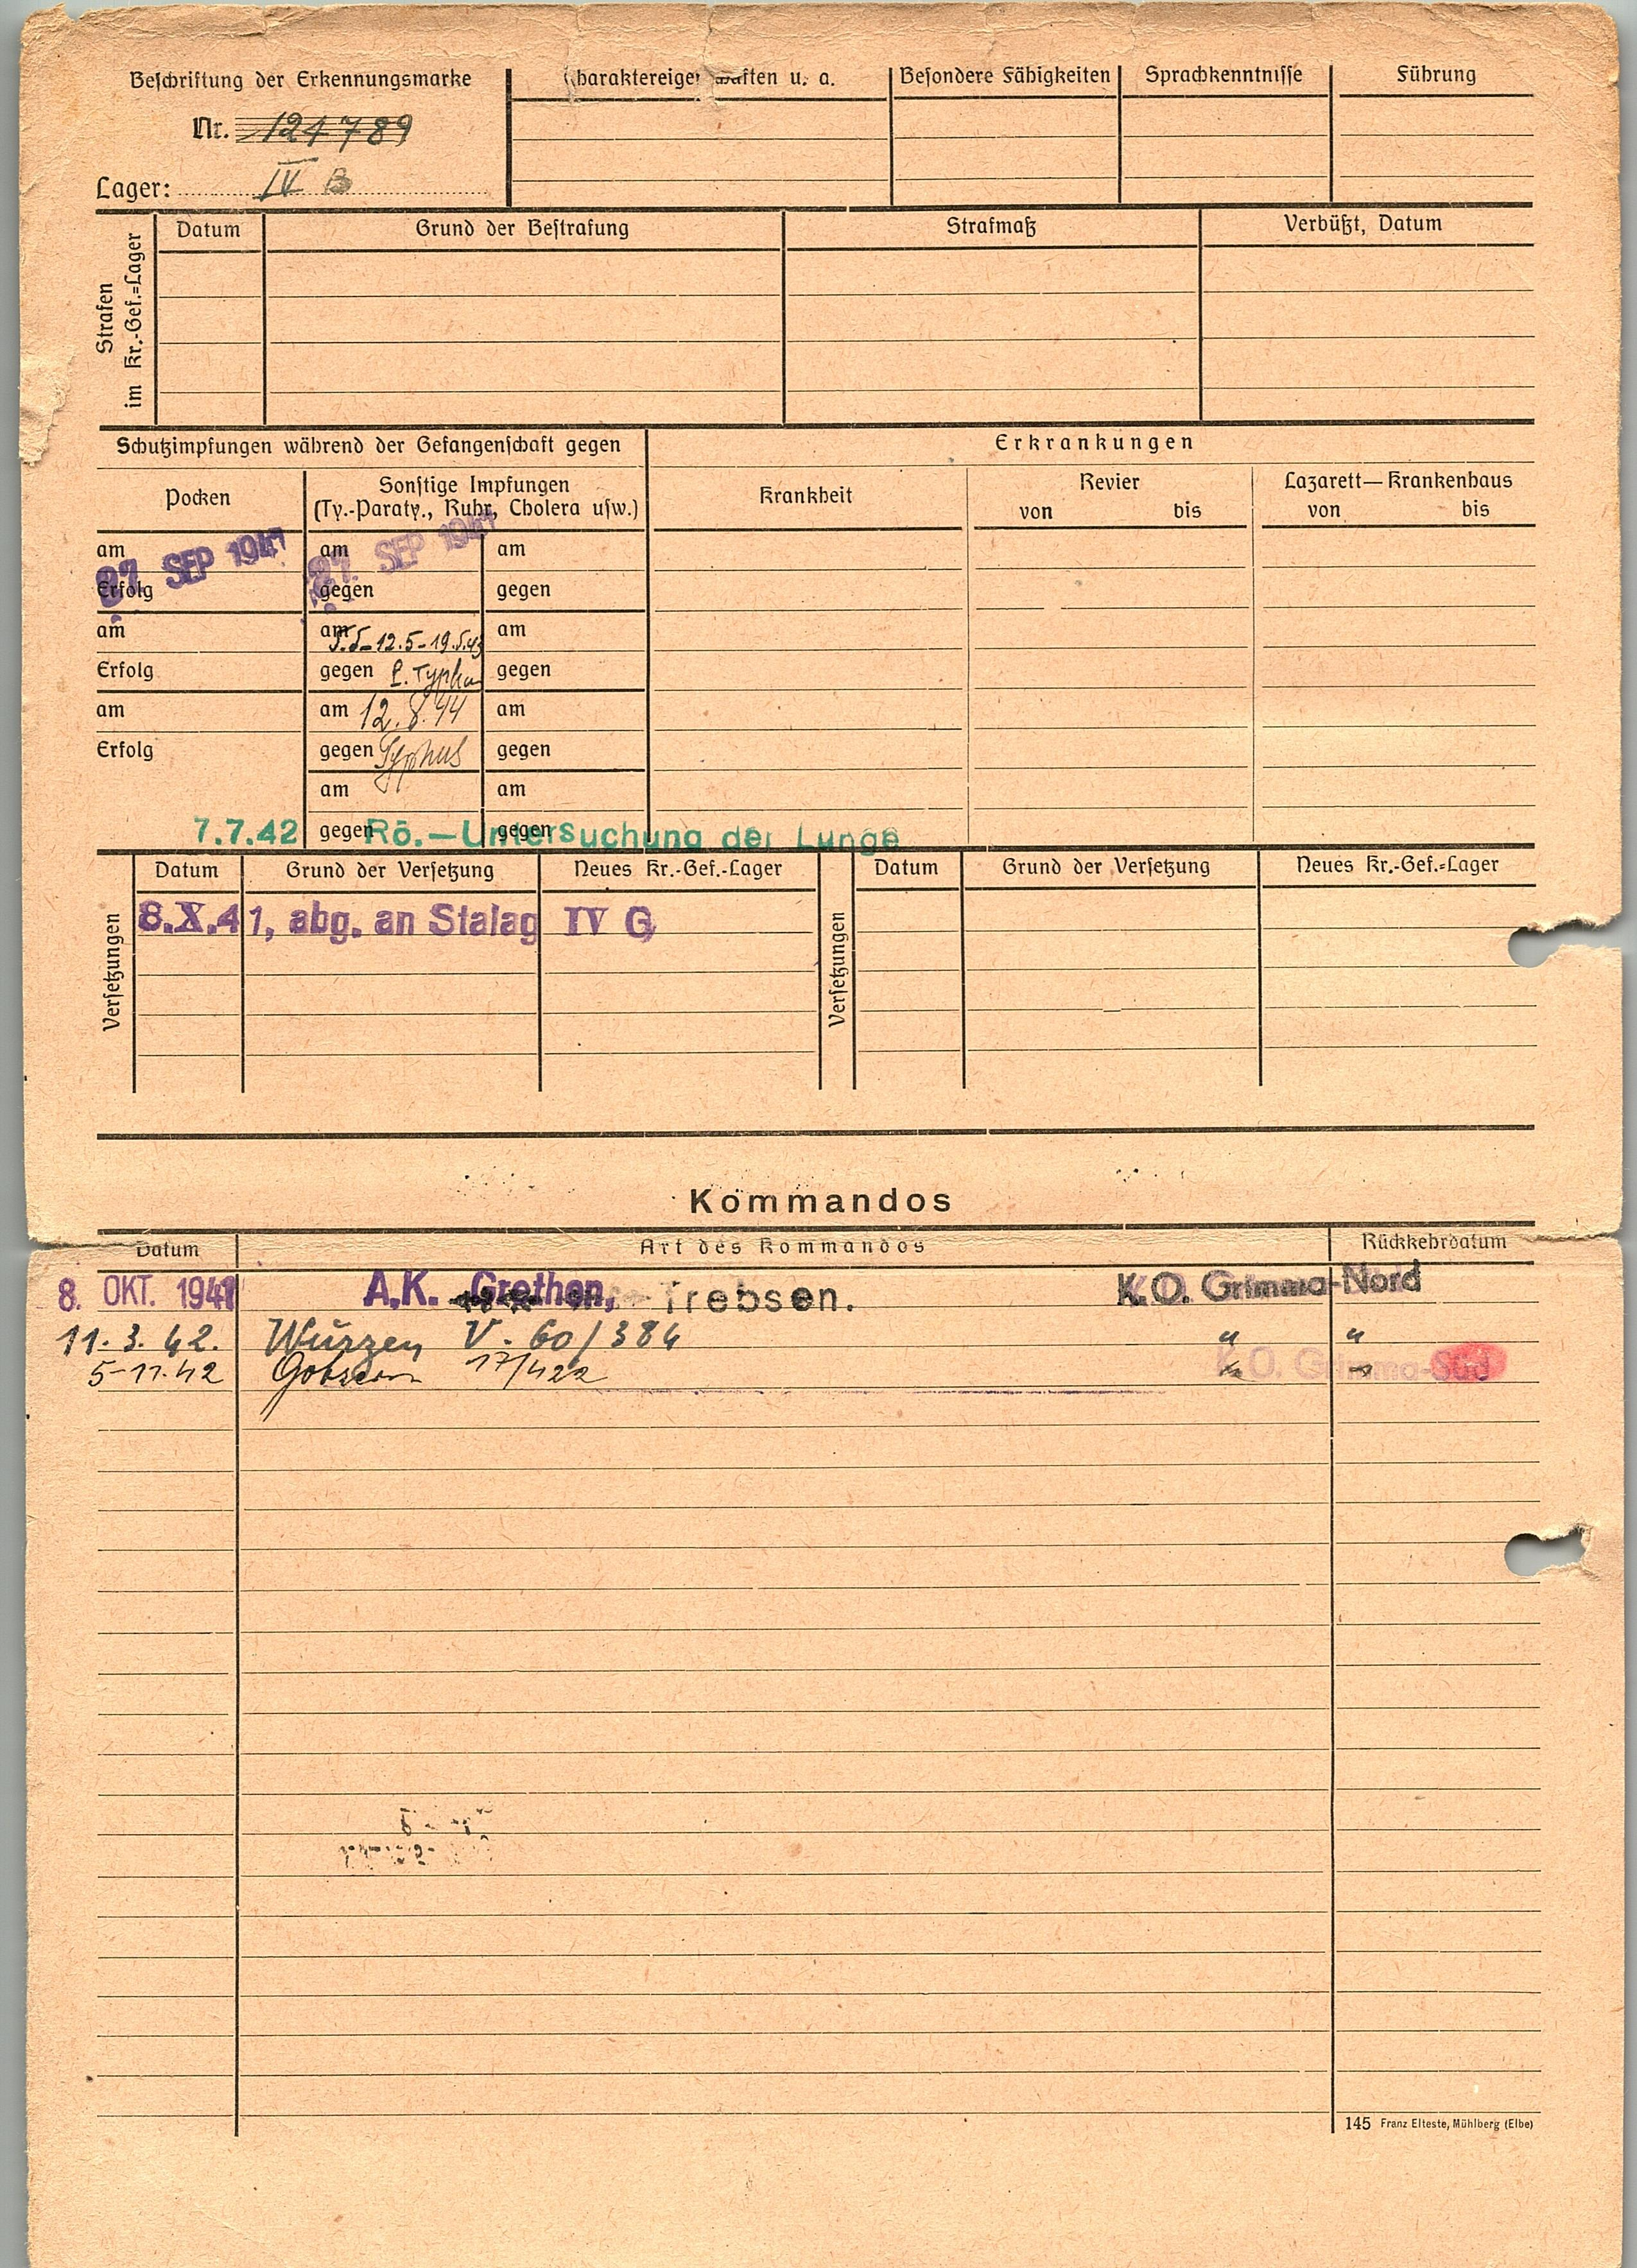 Beschriftung der Erkennungsmarke
Nr. 124789
Lager: IV B
Charaktereigenschaften u. a.
Besondere Fähigkeiten
Sprachkenntnisse
Führung
Strafen
im Kr.-Gef.=Lager
Datum
Grund der Bestrafung
Strafmaß
Verbüßt, Datum
Schutzimpfungen während der Gefangenschaft gegen
Erkrankungen
Pocken
Sonstige Impfungen
(Ty.-Paraty., Ruhr, Cholera usw.)
Krankheit
Revier
von bis
Lazarett—Krankenhaus
von bis
am 27. SEP 1941
Erfolg
am
Erfolg
am
Erfolg
am 27. SEP 1941
gegen
am 5.5-12.5-19.5.43
gegen
am 12.8.44
gegen Typhus
am
gegen
am
gegen
am
gegen
am
gegen
am
gegen
7.7.42 Rö.—Untersuchung der Lunge
Versetzungen
Datum
Grund der Versetzung
Neues Kr.-Gef.-Lager
8.X.41, abg. an Stalag IV G
Versetzungen
Datum
Grund der Versetzung
Neues Kr.-Gef.=Lager
Kommandos
Datum
Art des Kommandos
Rückkehrdatum
8. OKT. 1941 A.K. Grethen, Trebsen. K.O. Grimma-Nord
11. 3. 42. Wurzen V. 60/384 " "
5-11.42 17/422 K.O. Grimma-Süd
145 Franz Elteste, Mühlberg (Elbe)